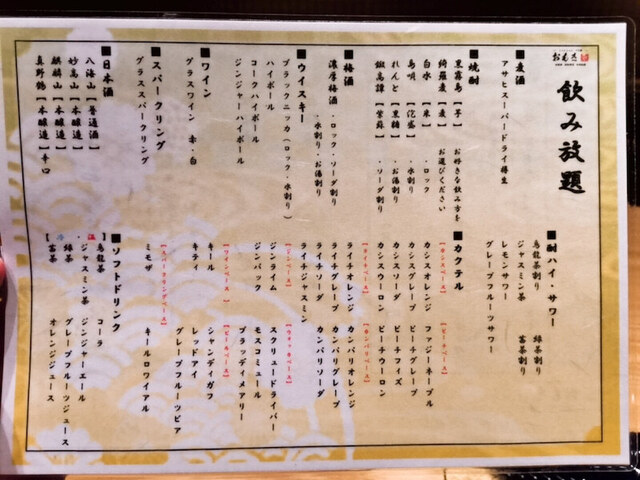 飲み放題
■麦酒
アサヒスーパードライ樽生
■焼酎
黒霧島【芋】
綺羅麦【麦】
白水【米】
島唄【泡盛】
れんと【黒糖】
鍛高譚【紫蘇】
お好きな飲み方を
お選びください
・ロック
・水割り
・お湯割り
・ソーダ割り
■梅酒
濃厚梅酒
・ロック・ソーダ割り
・水割り・お湯割り
■ウイスキー
ブラックニッカ(ロック・水割り)
ハイボール
コークハイボール
ジンジャーハイボール
■ワイン
グラスワイン 赤・白
■スパークリング
グラススパークリング
■日本酒
八海山【普通酒】
妙高山【本醸造】
麒麟山【本醸造】
真野鶴【本醸造】辛口
■酎ハイ・サワー
烏龍茶割り
緑茶割り
ジャスミン茶
富茶割り
レモンサワー
グレープフルーツサワー
■カクテル
【カシスベース】
カシスオレンジ
カシスグレープ
カシスソーダ
カシスウーロン
【ピーチベース】
ファジーネーブル
ピーチグレープ
ピーチフィズ
ピーチウーロン
【ライチベース】
ライチオレンジ
ライチグレープ
ライチソーダ
ライチジャスミン
【カンパリベース】
カンパリオレンジ
カンパリグレープ
カンパリソーダ
【ジンベース】
ジンライム
ジンバック
【ウォッカベース】
スクリュードライバー
モスコミュール
ブラッディメアリー
【ワインベース】
キール
キティ
【ビールベース】
シャンディガフ
レッドアイ
グレープフルーツビア
【スパークリングベース】
ミモザ
キールロワイアル
■ソフトドリンク
烏龍茶
ジャスミン茶
緑茶
富茶
コーラ
ジンジャーエール
グレープフルーツジュース
オレンジジュース